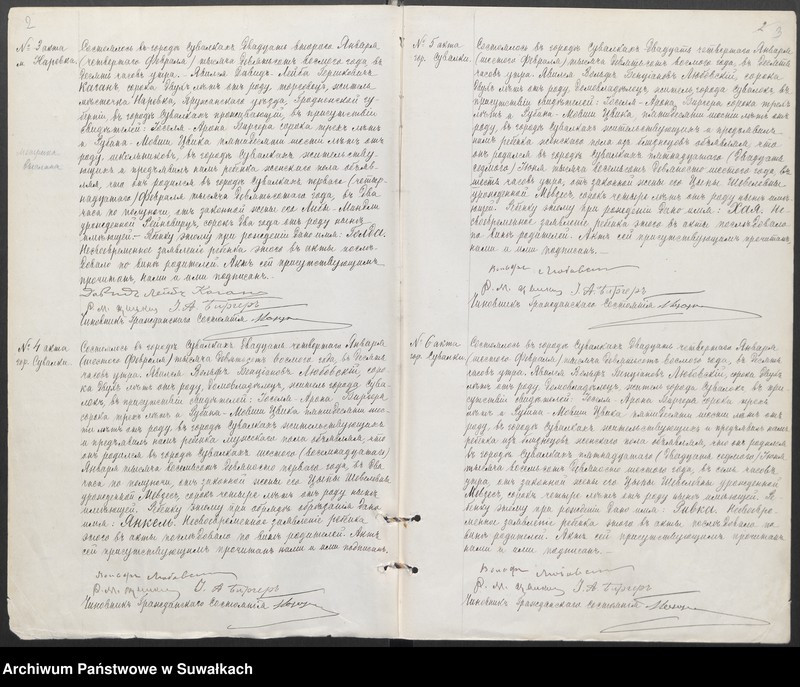 2
№ 3 акта
м. Наревка.
Состоялось въ городѣ Сувалкахъ двадцать втораго Января
(четвертаго Февраля) тысяча девятьсотъ восьмого года, въ
десять часовъ утра. Явился Давидъ Лейба
Каганъ, сорока двухъ лѣтъ отъ роду, торговецъ, житель
мѣстечка Наревка, Пружанскаго уѣзда, Гродненской гу-
берніи, въ городѣ Сувалкахъ проживающій, въ присутствіи
свидѣтелей: Іоселя-Арона Баргера сорока трехъ лѣтъ
и Рувина-Мовши Цвика пятидесяти шести лѣтъ отъ
роду, школьниковъ, въ городѣ Сувалкахъ жительству-
ющихъ и предъявилъ намъ ребенка женскаго пола объяв-
ляя, что онъ родился въ городѣ Сувалкахъ перваго (четыр-
надцатаго) Февраля тысяча девятьсотаго года, въ два
часа по полуночи, отъ законной жены его
урожденной сорокъ два года отъ роду нынѣ
имѣющей. Ребенку этому при рожденіи дано имя: Голда.
Несвоевременное заявленіе ребенка этого въ акты послѣ-
довало по винѣ родителей. Актъ сей присутствующимъ
прочитанъ, нами и ими подписанъ.
Давидъ Лейбъ Каганъ
Р. М. Цвикъ І. А. Бергеръ
Чиновникъ Гражданскаго Состоянія
№ 4 акта
гор. Сувалки.
Состоялось въ городѣ Сувалкахъ двадцать четвертаго Января
(шестого Февраля) тысяча девятьсотъ восьмого года, въ десять
часовъ утра. Явился Вольфъ Любовскій, соро-
ка двухъ лѣтъ отъ роду, домовладѣлецъ, житель города Сува-
локъ, въ присутствіи свидѣтелей: Іоселя-Арона Баргера,
сорока трехъ лѣтъ и Рувина-Мовши Цвика пятидесяти ше-
сти лѣтъ отъ роду, въ городѣ Сувалкахъ жительствующихъ
и предъявилъ намъ ребенка мужескаго пола объявляя, что
онъ родился въ городѣ Сувалкахъ шестого (восемнадцатаго)
Января тысяча восемьсотъ девяносто перваго года, въ два
часа по полуночи, отъ законной жены его Цыпы Шевелевны
урожденной Мовзесъ, сорокъ четыре лѣтъ отъ роду нынѣ
имѣющей. Ребенку этому при обрядѣ обрѣзанія дано
имя: Янкель. Несвоевременное заявленіе ребенка
этого въ акты послѣдовало по винѣ родителей. Актъ
сей присутствующимъ прочитанъ нами и ими подписанъ.
Вольфъ Любовскій
Р. М. Цвикъ І. А. Бергеръ
Чиновникъ Гражданскаго Состоянія
2
3
№ 5 акта
гор. Сувалки.
Состоялось въ городѣ Сувалкахъ двадцать четвертаго Января
(шестого Февраля) тысяча девятьсотъ восьмого года, въ десять
часовъ утра. Явился Вольфъ Любовскій, сорока
двухъ лѣтъ отъ роду, домовладѣлецъ, житель города Сувалокъ въ
присутствіи свидѣтелей: Іоселя-Арона Баргера сорока трехъ
лѣтъ и Рувина-Мовши Цвика, пятидесяти шести лѣтъ отъ
роду, въ городѣ Сувалкахъ жительствующихъ и предъявилъ
намъ ребенка женскаго пола изъ близнецовъ объявляя, что
онъ родился въ городѣ Сувалкахъ пятнадцатаго (двадцать
седьмого) Іюня тысяча восемьсотъ девяносто шестого года, въ
шесть часовъ утра, отъ законной жены его Цыпы Шевелевны
урожденной Мовзесъ, сорокъ четыре лѣтъ отъ роду нынѣ имѣю-
щей. Ребенку этому при рожденіи дано имя: Хая. Не-
своевременное заявленіе ребенка этого въ акты послѣдовало
по винѣ родителей. Актъ сей присутствующимъ прочитанъ
нами и ими подписанъ.
Вольфъ Любовскій
Р. М. Цвикъ І. А. Бергеръ
Чиновникъ Гражданскаго Состоянія
№ 6 акта
гор. Сувалки
Состоялось въ городѣ Сувалкахъ двадцать четвертаго Января
(шестого Февраля) тысяча девятьсотъ восьмого года, въ десять
часовъ утра. Явился Вольфъ Любовскій, сорока двухъ
лѣтъ отъ роду, домовладѣлецъ, житель города Сувалокъ въ при-
сутствіи свидѣтелей: Іоселя-Арона Баргера сорока трехъ
лѣтъ и Рувина-Мовши Цвика пятидесяти шести лѣтъ отъ
роду, въ городѣ Сувалкахъ жительствующихъ и предъявилъ намъ
ребенка изъ близнецовъ женскаго пола объявляя, что онъ родился
въ городѣ Сувалкахъ пятнадцатаго (двадцать седьмого) Іюня
тысяча восемьсотъ девяносто шестого года, въ семь часовъ
утра, отъ законной жены его Цыпы Шевелевны урожденной
Мовзесъ, сорокъ четыре лѣтъ отъ роду нынѣ имѣющей. Ре-
бенку этому при рожденіи дано имя: Ривка. Несвоевре-
менное заявленіе ребенка этого въ акты послѣдовало по
винѣ родителей. Актъ сей присутствующимъ прочитанъ
нами и ими подписанъ.
Вольфъ Любовскій
Р. М. Цвикъ І. А. Бергеръ
Чиновникъ Гражданскаго Состоянія
Archiwum Państwowe w Suwałkach